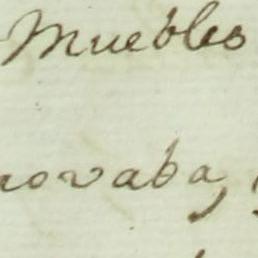 Muebles
rovaba,